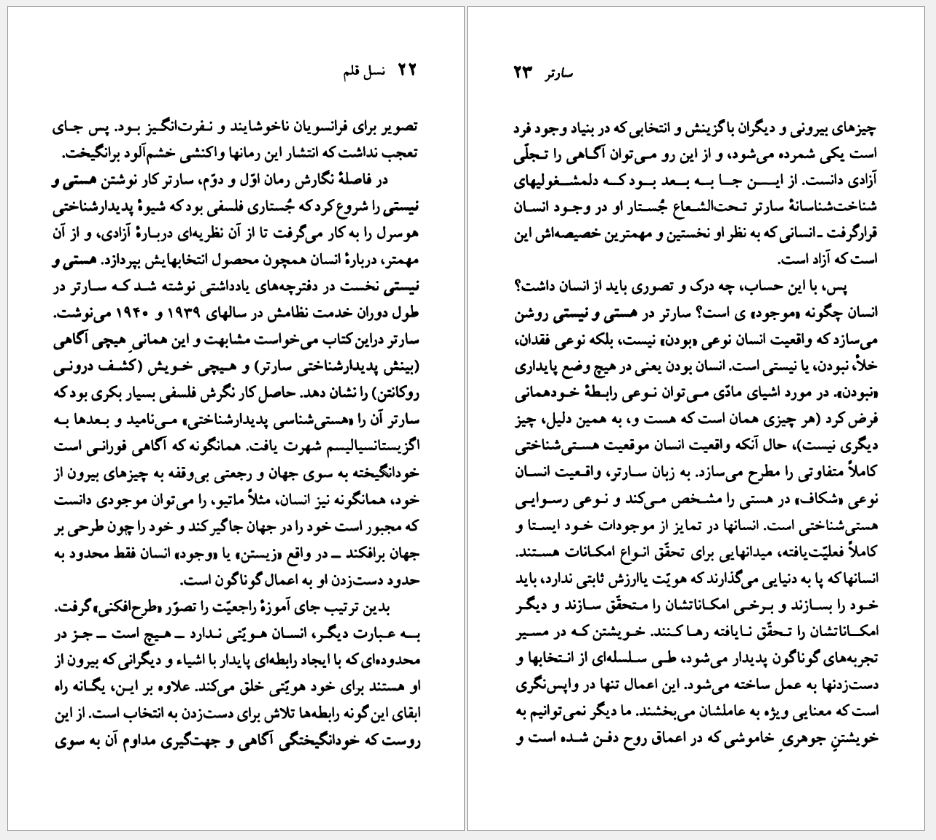 ۲۲ نسل قلم
تصویر برای فرانسویان ناخوشایند و نفرت‌انگیز بود. پس جای
تعجب نداشت که انتشار این رمانها واکنشی خشم‌آلود برانگیخت.
در فاصلهٔ نگارش رمان اوّل و دوّم، سارتر کار نوشتن هستی و
نیستی را شروع کرد که جُستاری فلسفی بود که شیوهٔ پدیدارشناختی
هوسرل را به کار می‌گرفت تا از آن نظریه‌ای دربارهٔ آزادی، و از آن
مهمتر، دربارهٔ انسان همچون محصول انتخابهایش بپردازد. هستی و
نیستی نخست در دفترچه‌های یادداشتی نوشته شد که سارتر در
طول دوران خدمت نظامش در سالهای ۱۹۳۹ و ۱۹۴۰ می‌نوشت.
سارتر دراین کتاب می‌خواست مشابهت و این همانیِ هیچی آگاهی
(بینش پدیدارشناختی سارتر) و هیچی خویش (کشف درونی
روکانتن) را نشان دهد. حاصل کار نگرش فلسفی بسیار بکری بود که
سارتر آن را «هستی‌شناسی پدیدارشناختی» می‌نامید و بعدها به
اگزیستانسیالیسم شهرت یافت. همانگونه که آگاهی فورانی است
خودانگیخته به سوی جهان و رجعتی بی‌وقفه به چیزهای بیرون از
خود، همانگونه نیز انسان، مثلاً ماتیو، را می‌توان موجودی دانست
که مجبور است خود را در جهان جاگیر کند و خود را چون طرحی بر
جهان برافکند ــ در واقع «زیستن» یا «وجود» انسان فقط محدود به
حدود دست‌زدن او به اعمال گوناگون است.
بدین ترتیب جای آموزهٔ راجعیّت را تصوّر «طرح‌افکنی» گرفت.
به عبارت دیگر، انسان هویّتی ندارد ــ هیچ است ــ جز در
محدوده‌ای که با ایجاد رابطه‌ای پایدار با اشیاء و دیگرانی که بیرون از
او هستند برای خود هویّتی خلق می‌کند. علاوه بر این، یگانه راه
ابقای این‌گونه رابطه‌ها تلاش برای دست‌زدن به انتخاب است. از این
روست که خودانگیختگی آگاهی و جهت‌گیری مداوم آن به سوی
سارتر ۲۳
چیزهای بیرونی و دیگران با گزینش و انتخابی که در بنیاد وجود فرد
است یکی شمرده می‌شود، و از این رو می‌توان آگاهی را تجلّی
آزادی دانست. از این جا به بعد بود که دلمشغولیهای
شناخت‌شناسانهٔ سارتر تحت‌الشعاع جُستار او در وجود انسان
قرارگرفت ـ انسانی که به نظر او نخستین و مهمترین خصیصه‌اش این
است که آزاد است.
پس، با این حساب، چه درک و تصوری باید از انسان داشت؟
انسان چگونه «موجود» ی است؟ سارتر در هستی و نیستی روشن
می‌سازد که واقعیت انسان نوعی «بودن» نیست، بلکه نوعی فقدان،
خلأ، نبودن، یا نیستی است. انسان بودن یعنی در هیچ وضع پایداری
«نبودن». در مورد اشیای مادّی می‌توان نوعی رابطهٔ خودهمانی
فرض کرد (هر چیزی همان است که هست و، به همین دلیل، چیز
دیگری نیست)، حال آنکه واقعیت انسان موقعیت هستی‌شناختی
کاملاً متفاوتی را مطرح می‌سازد. به زبان سارتر، واقعیت انسان
نوعی «شکاف» در هستی را مشخص می‌کند و نوعی رسوایی
هستی‌شناختی است. انسانها در تمایز از موجودات خود ایستا و
کاملاً فعلیّت‌یافته، میدانهایی برای تحقّق انواع امکانات هستند.
انسانها که پا به دنیایی می‌گذارند که هویّت یاارزش ثابتی ندارد، باید
خود را بسازند و برخی امکاناتشان را متحقّق سازند و دیگر
امکاناتشان را تحقّق نایافته رها کنند. خویشتن که در مسیر
تجربه‌های گوناگون پدیدار می‌شود، طی سلسله‌ای از انتخابها و
دست‌زدنها به عمل ساخته می‌شود. این اعمال تنها در واپس‌نگری
است که معنایی ویژه به عاملشان می‌بخشند. ما دیگر نمی‌توانیم به
خویشتنِ جوهریِ خاموشی که در اعماق روح دفن شده است و